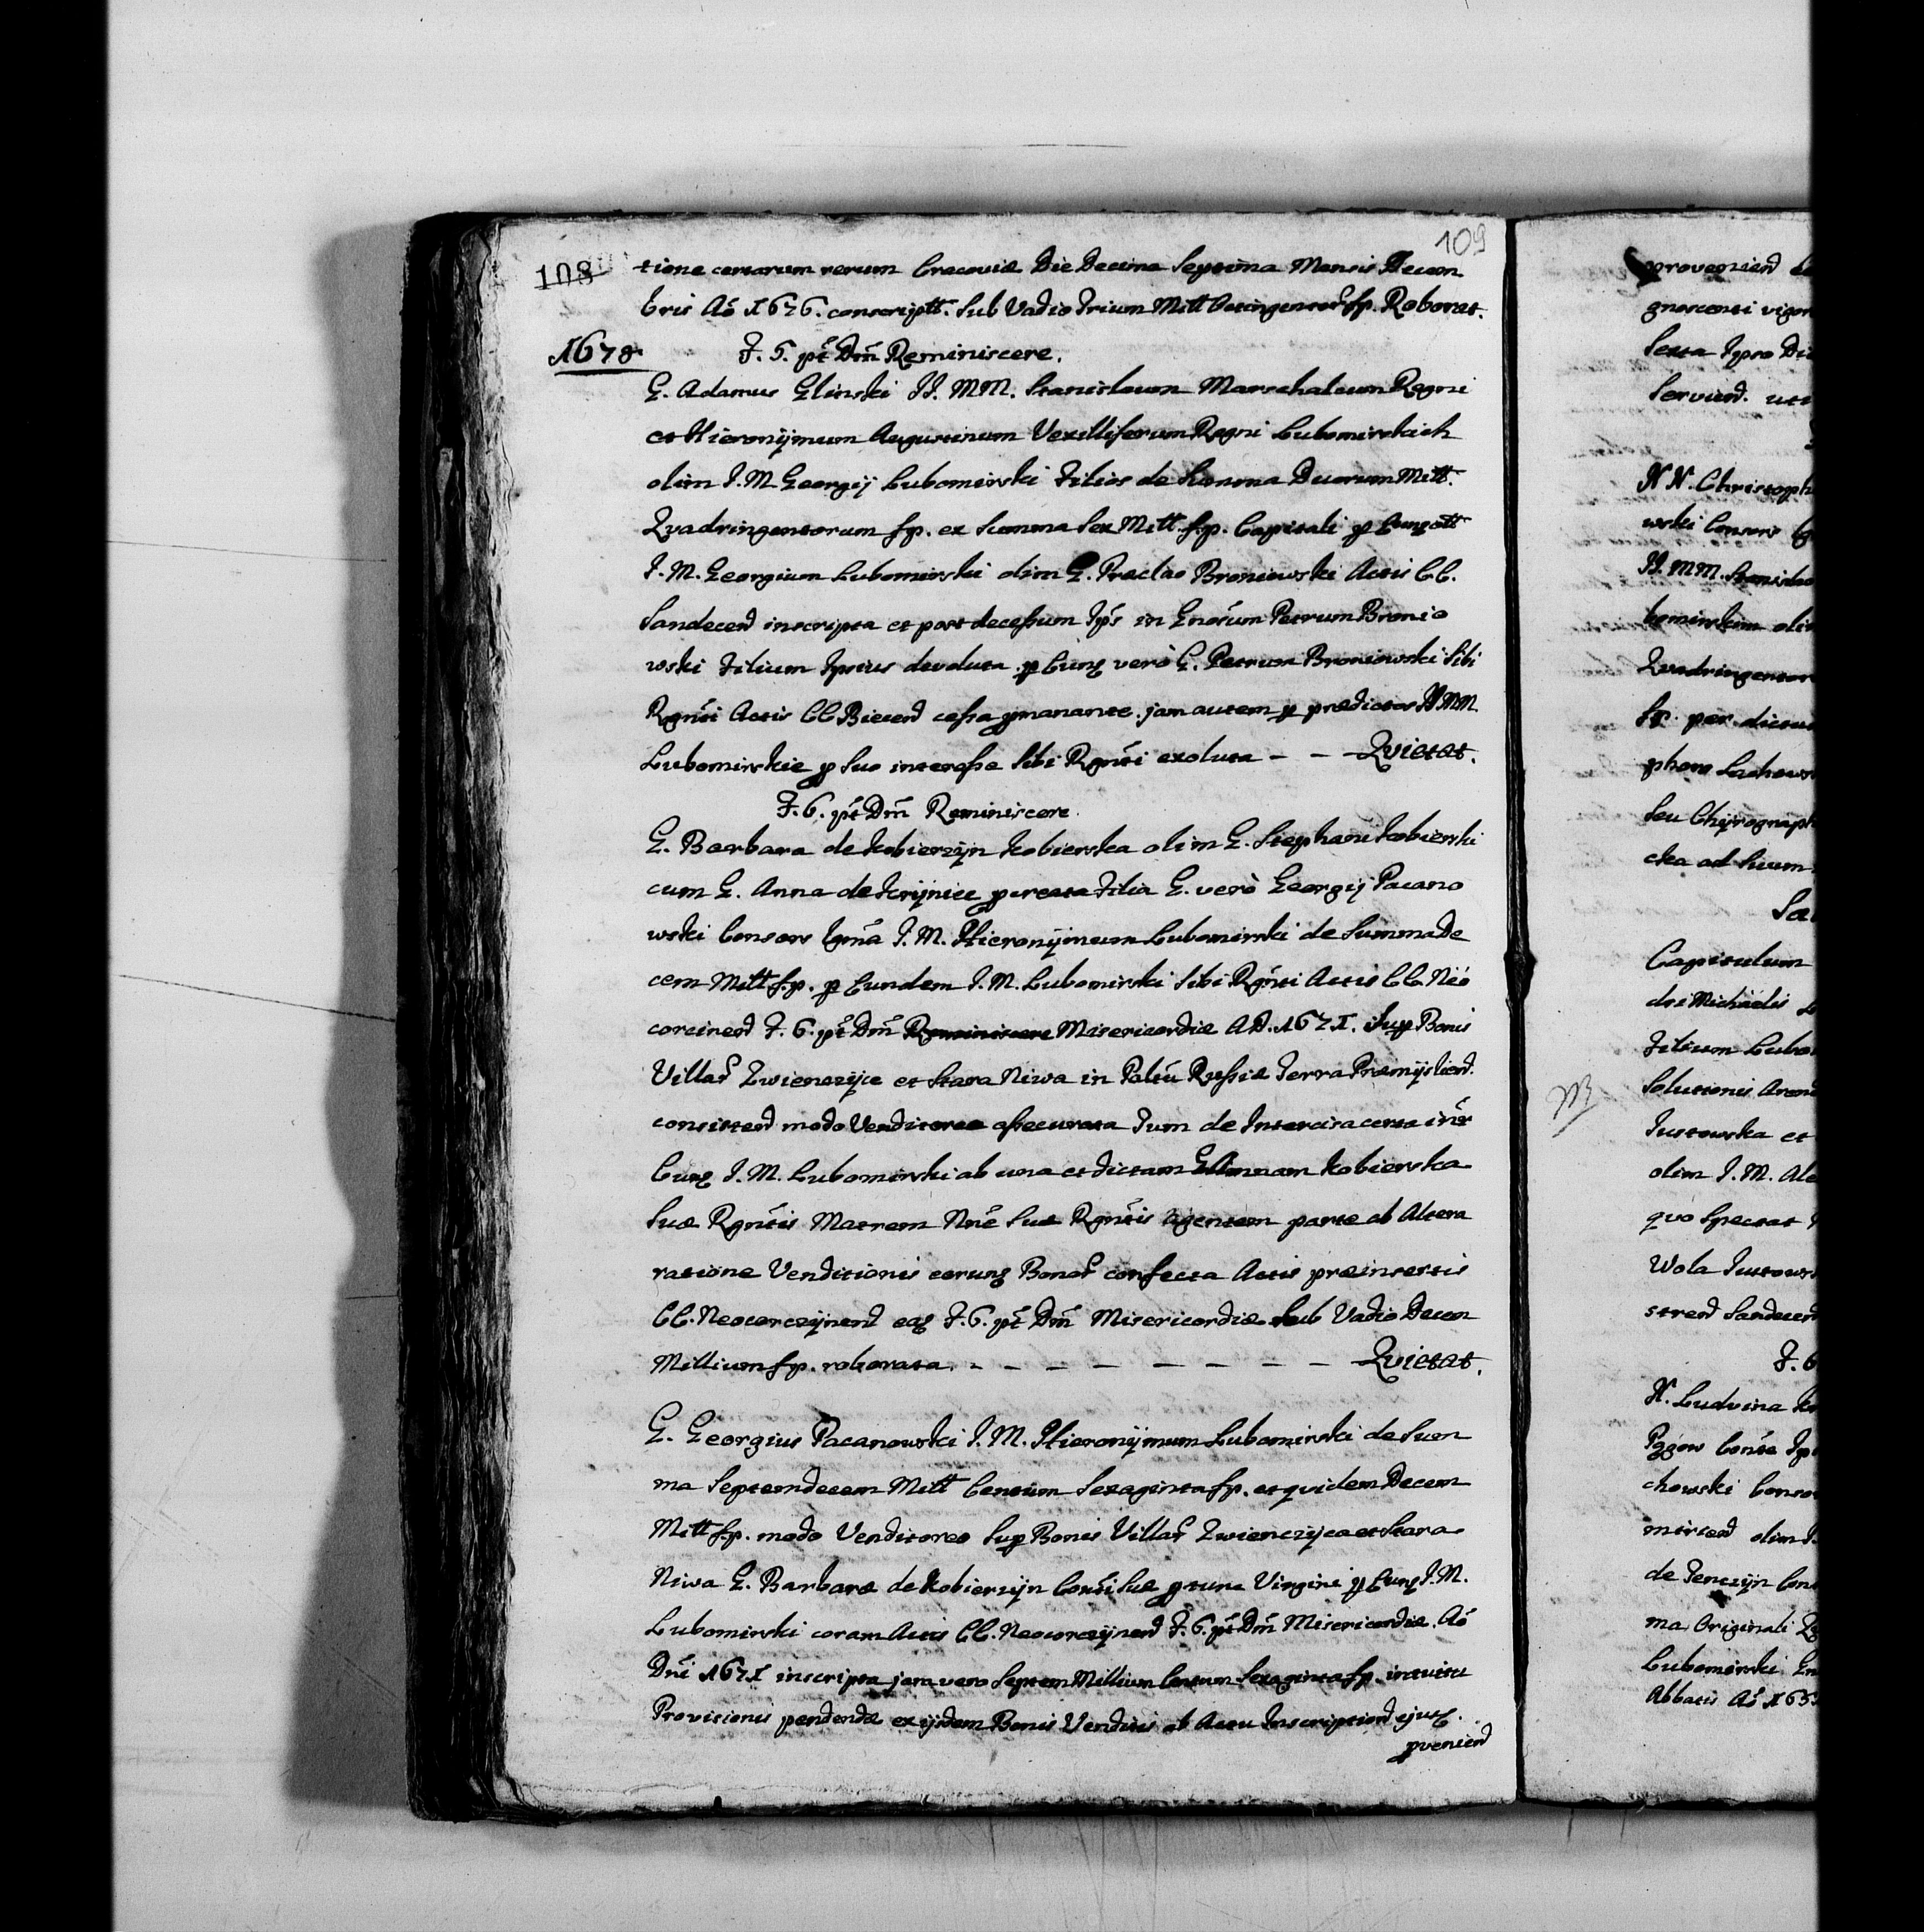 109
108
tione certarum rerum Cracoviæ Die Decima Septima Mensis Decem
bris Aõ 1676. conscriptt. Sub Vadio Trium Mill Octingentor fp. Roborat.
1678 F. 5. pt Dm̃ Reminiscere.
G. Adamus Glinski JJ. MM. Stanislaum Marschalcum Regni
et Hieronÿmum Augustinum Vexilliferum Regni Lubomirskich
olim J. M. Georgij Lubomirski Filios de Summa Duorum Mill.
Qvadringentorum fp. ex Summa Sex Mill. fp. Capitali p
J. M. Georgium Lubomirski olim G. Preclao Broniowski Actis CC.
Sandecen inscripta et post decessum Ips in Gnosum Petrum Bronio
wski Filium Ipsius devoluta p Eunq verò G. Petrum Broniowski Sibi
Rgnti Actis CC Biecen cessa pmanante jam autem p prædictos JJ MM.
Lubomirskie p Suo interesse Sibi Rgnti exoluta – – Qvietat.
F. 6. pt Dm̃ Reminiscere.
G. Barbara de Kobierzÿn Kobierska olim G. Stephani Kobierski
cum G. Anna de Krÿnice pcreata Filia G. verò Georgij Pacano
wski Consors Lgma J. M. Hieronÿmum Lubomirski de Summa De
cem Mill fp. p Eundem J. M. Lubomirski Sibi Rgnti Actis CC Neo
corcinen F. 6. pt Dm̃ Reminiscere Misericordiæ A D. 1671. Sup Bonis
Villar Zwienczÿce et Stara Niwa in Paltu Russiæ Terra Præmÿslien.
consisten modo Venditoreo assecurata Tum de Intercisa certa intr
Eunq J. M. Lubomirski ab una et dictam G Annam Kobierska
Suæ Rgntis Matrem Nñe Suæ Rgntis agentem parte ab Altera
ratione Venditionis eorunq Bonor confecta Actis præinsertis
CC. Neocorczÿnen eaq F. 6. pt Dm̃ Misericordiæ Sub Vadio Decem
Millium fp. roborata. – – – – – – – Qvietat.
G. Georgius Pacanowski J. M. Hieronÿmum Lubomirski de Sum
ma Septemdecem Mill Centum Sexaginta fp. et qvidem Decem
Mill fp. modo Venditoreo Sup Bonis Villar Zwienczÿca et Stara
Niwa G. Barbaræ de Kobierzÿn Consi Suæ p tunc Virgini p Eunq J. M.
Lubomirski coram Actis CC. Neocorczÿnen F. 6. pt Dm̃ Misericordiæ. Aõ
Dni 1671 inscripta jam vero Septem Millium Centum Sexaginta fp. intuitu
Provisionis pendendæ ex ijsdem Bonis Venditis ab Actu Inscription ejusq.
pvenien
provenien
gnoscenti vigor
Sexta Ipso Di
Servien. uti
N N. Christoph
wski Consors
JJ. MM. Stanislao
bomirskim olim
Qvadringentor
fp. per dictu
phoro Lachows
Seu Chÿrograph
cka ad Suum
Sa
Capitulum
dri Michaelis
Filium Lubo
Solutionis Aren
Justowska et
olim J. M. Ale
qvo Spectat
Wola Justows
stren Sandecen
F. 6
N. Ludvina
Consa Ip
chowski Conso
mirien olim J.
de Tenczÿn Con
ma Originali
Lubomirski
Abbatis Aõ 165